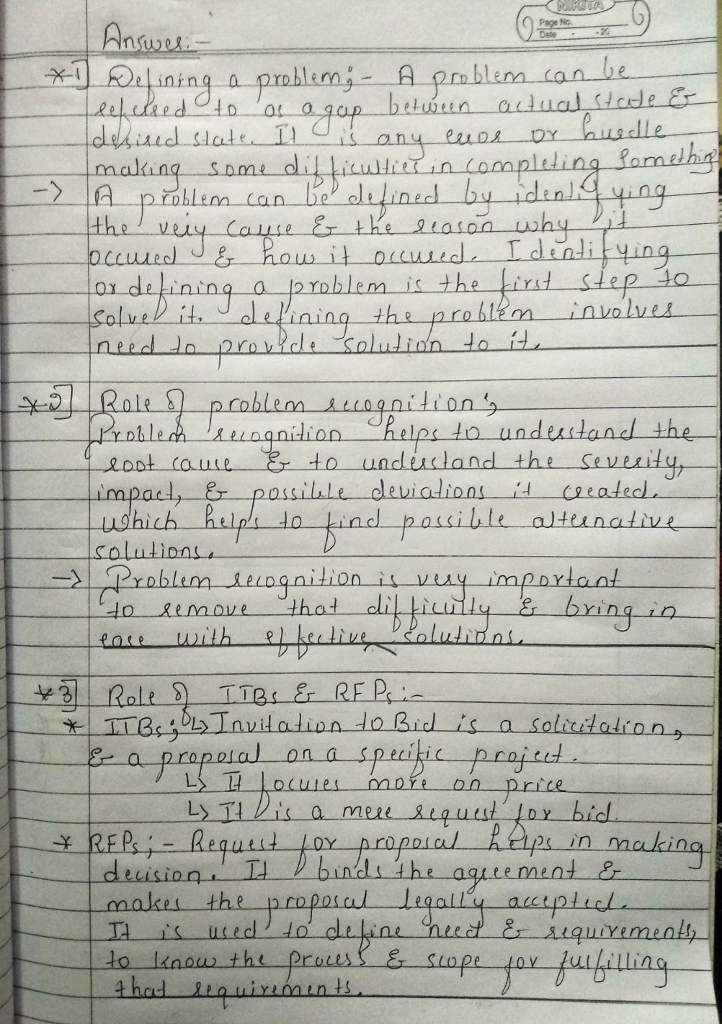 NIKITA
Page No.
Date - -20
Answer:-
*1] Defining a problem;- A problem can be
refered to as a gap between actual state &
desired state. It is any error or hurdle
making some difficulties in completing Something
-> A problem can be defined by identifying
the very cause & the reason why it
occured & how it occured. Identifying
or defining a problem is the first step to
solve it. defining the problem involves
need to provide solution to it.
*2] Role of problem recognition;
Problem recognition helps to understand the
root cause & to understand the severity,
impact, & possible deviations it created.
which helps to find possible alternative
solutions.
-> Problem recognition is very important
to remove that difficulty & bring in
ease with effective solutions.
*3] Role of ITBs & RFPs:-
* ITBs; ↳ Invitation to Bid is a solicitation,
& a proposal on a specific project.
↳ It focuses more on price
↳ It is a mere request for bid.
* RFPs;- Request for proposal helps in making
decision. It binds the agreement &
makes the proposal legally accepted.
It is used to define need & requirements,
to know the process & scope for fulfilling
that requirements.